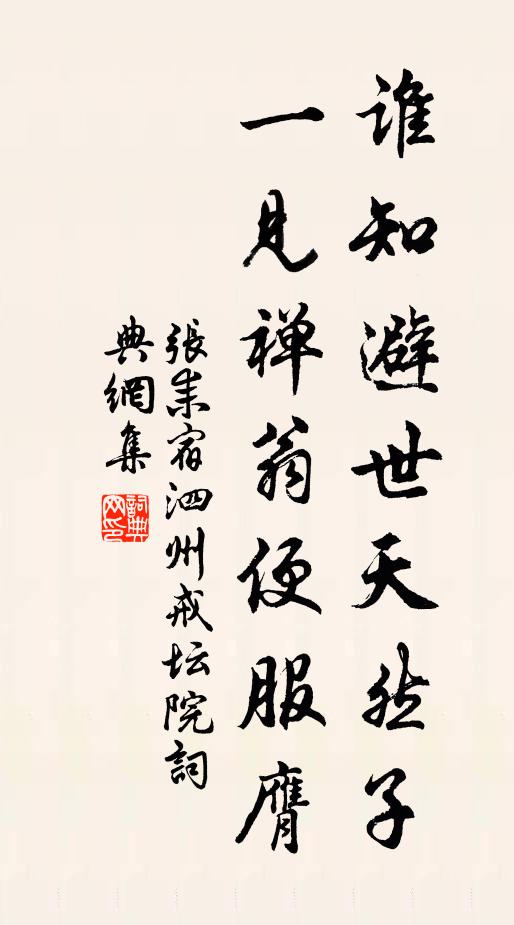 谁知避世天然子
一見禅翁便服膺
張耒宿泗州戒坛院詞
典網集
詞典網印